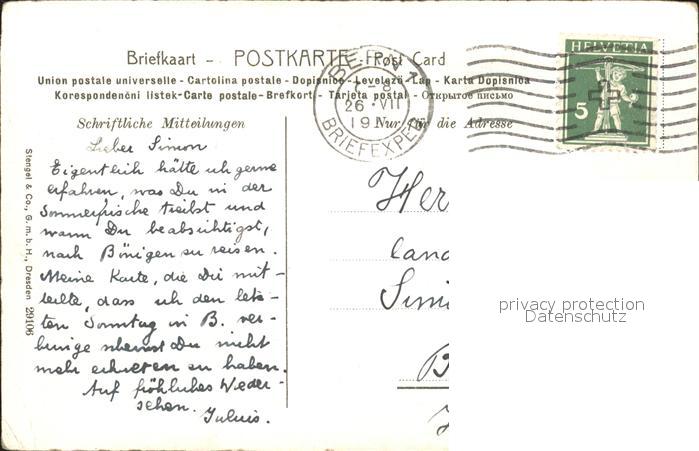 Briefkaart – POSTKARTE – Post Card
Union postale universelle - Cartolina postale - Dopisnice - Levelező-Lap - Karta Dopisnia
Korespondenční listek - Carte postale - Brefkort - Tarjeta postal - Открытое письмо
Schriftliche Mitteilungen
Nur für die Adresse
BERN 1
- 8
26. VII
19
BRIEFEXPED.
HELVETIA
5
Lieber Simon
Eigentlich hätte ich gerne
erfahren, was Du in der
Sommerfrische treibst und
wann Du beabsichtigst,
nach Bönigen zu reisen.
Meine Karte, die Dir mit-
teilte, dass ich den letz-
ten Sonntag in B. ver-
bringe scheinst Du nicht
mehr erhalten zu haben.
Auf fröhliches Wieder-
sehen.
Julius.
Her
cand
Sim
B
Stengel & Co., G.m.b.H., Dresden 29106
privacy protection
Datenschutz